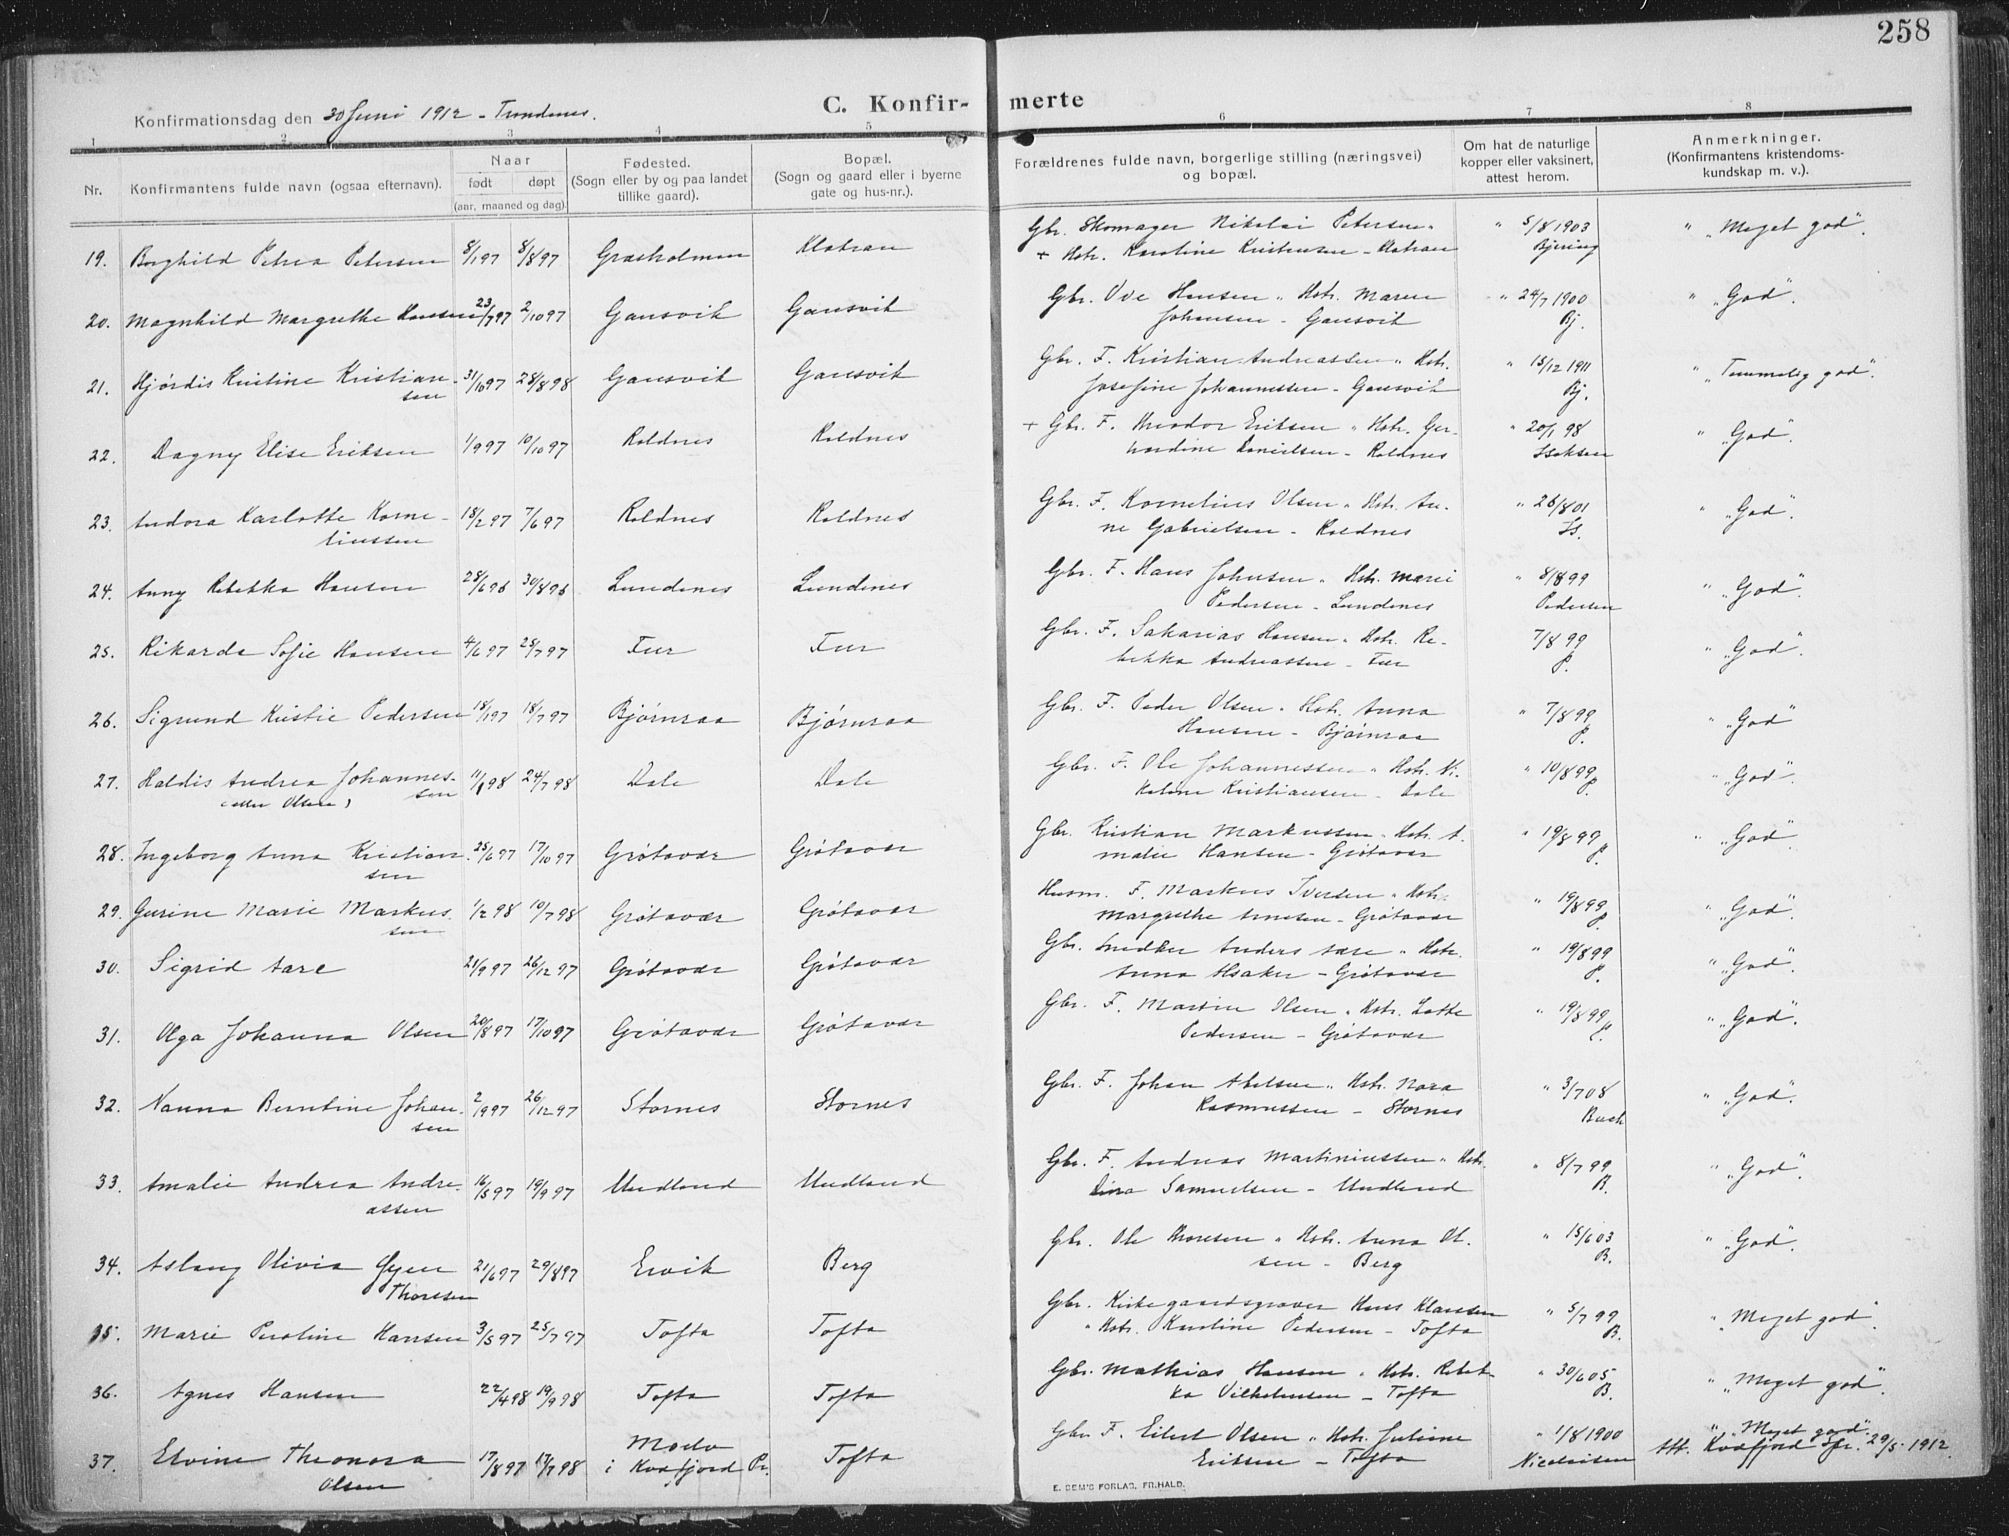 258
Konfirmationsdag den 30 Juni 1912 - Trondenes.
C. Konfir- merte
1 2 3 4 5 6 7 8
Nr.
Konfirmantens fulde navn (ogsaa efternavn).
Naar
født døpt
(aar, maaned og dag).
Fødested.
(Sogn eller by og paa landet
tillike gaard).
Bopæl.
(Sogn og gaard eller i byerne
gate og hus-nr.).
Forældrenes fulde navn, borgerlige stilling (næringsvei)
og bopæl.
Om hat de naturlige
kopper eller vaksinert,
attest herom.
Anmerkninger.
(Konfirmantens kristendoms-
kundskap m. v.).
19. Borghild Petrea Petersen 8/1 97 8/8 97 Græsholmen Klatran
Gbr. Skomager Nikolai Petersen "
+ Hstr. Karoline Kristensen - Klatran
" 5/8 1903
Bjering
" "Meget god".
20. Magnhild Margrethe Hansen 23/7 97 2/10 97 Gausvik Gausvik
Gbr. Ove Hansen " Hstr. Maren
Johansen - Gausvik
" 24/7 1900
Bj.
" "God".
21. Hjørdis Kristine Kristian-
sen 31/10 97 28/8 98 Gausvik Gausvik
Gbr. F. Kristian Andreassen " Hstr.
Josefine Johannessen - Gausvik
" 15/12 1911
Bj.
" "Temmelig god".
22. Dagny Elise Eriksen 1/9 97 10/10 97 Roldnes Roldnes
+ Gbr. F. Theodor Eriksen " Hstr. Ger-
hardine Danielsen - Roldnes
" 20/1 98
Isaksen
" "God".
23. Andora Karlotte Korne-
liussen 18/2 97 7/6 97 Roldnes Roldnes
Gbr. F. Kornelius Olsen " Hstr. An-
ne Gabrielsen - Roldnes
" 26/8 01
Is.
" "God".
24. Anny Rebekka Hansen 28/6 96 30/8 96 Lundenes Lundenes
Gbr. F. Hans Johnsen " Hstr. Marie
Pedersen - Lundenes
" 8/8 99
Pedersen
" "God".
25. Rikarda Sofie Hansen 4/6 97 25/7 97 Fur Fur
Gbr. F. Sakarias Hansen " Hstr. Re-
bekka Andreassen - Fur
7/8 99
P.
" "God".
26. Sigrund Kristie Pedersen 18/1 97 18/7 97 Bjørnraa Bjørnraa
Gbr. F. Peder Olsen " Hstr. Anna
Hansen - Bjørnraa
" 7/8 99
P.
" "God"
27. Haldis Andrea Johannes-
sen (eller Olsen) 11/1 98 24/7 98 Dale Dale
Gbr. F. Ole Johannessen " Hstr. Ni-
koline Kristiansen - Dale
" 10/8 99
P.
" "God".
28. Ingeborg Anna Kristian-
sen 25/6 97 17/10 97 Grøtavær Grøtavær
Gbr. Kristian Markussen " Hstr. A-
malie Hansen - Grøtavær
" 19/8 99
P.
" "God".
29. Gurine Marie Markus-
sen 1/2 98 10/7 98 Grøtavær Grøtavær
Husm. F. Markus Iversen " Hstr.
Margrethe Arnesen - Grøtavær
" 19/8 99
P.
" "God".
30. Sigrid Aare 21/9 97 26/12 97 Grøtavær Grøtavær
Gbr. Snedker Anders Aare " Hstr.
Anna Haaker - Grøtavær
" 19/8 99
P.
" "God".
31. Olga Johanna Olsen 20/8 97 17/10 97 Grøtavær Grøtavær
Gbr. F. Martin Olsen " Hstr. Lotte
Pedersen - Grøtavær
" 19/8 99
P.
" "God".
32. Nanna Berntine Johan-
sen 2/9 97 26/12 97 Stornes Stornes
Gbr. F. Johan Abelsen " Hstr. Nora
Rasmussen - Stornes
" 3/7 08
Buch
" "God".
33. Amalie Andrea Andre-
assen 16/5 97 19/9 97 Undland Undland
Gbr. F. Andreas Martiniussen " Hstr.
Lina Samuelsen - Undland
" 8/7 99
B.
" "God".
34. Aslaug Olivia Gyen
Thoresen 21/6 97 29/8 97 Ervik Berg
Gbr. Ole Thoresen " Hstr. Anna Ol-
sen - Berg
" 15/6 03
B.
" "God".
35. Marie Peroline Hansen 3/5 97 25/7 97 Tofta Tofta
Gbr. Kirkegaardsgraver Hans Klausen
" Hstr. Karoline Pedersen - Tofta
" 5/7 99
B.
" "Meget god".
36. Agnes Hansen 22/4 98 19/9 98 Tofta Tofta
Gbr. Mathias Hansen " Hstr. Rebek-
ka Vilhelmsen - Tofta
" 30/6 05
B.
" "Meget god".
37. Elvine Theonora
Olsen 17/8 97 17/7 98 Moelv
i Kvæfjord Pr. Tofta
Gbr. F. Eilert Olsen " Hstr. Juliane
Eriksen - Tofta
" 1/8 1900
Nicolaisen
" "Meget god".
Att. Kvæfjord Spr. 29/5 1912.
E. SEM'S FORLAG, FR.HALD.